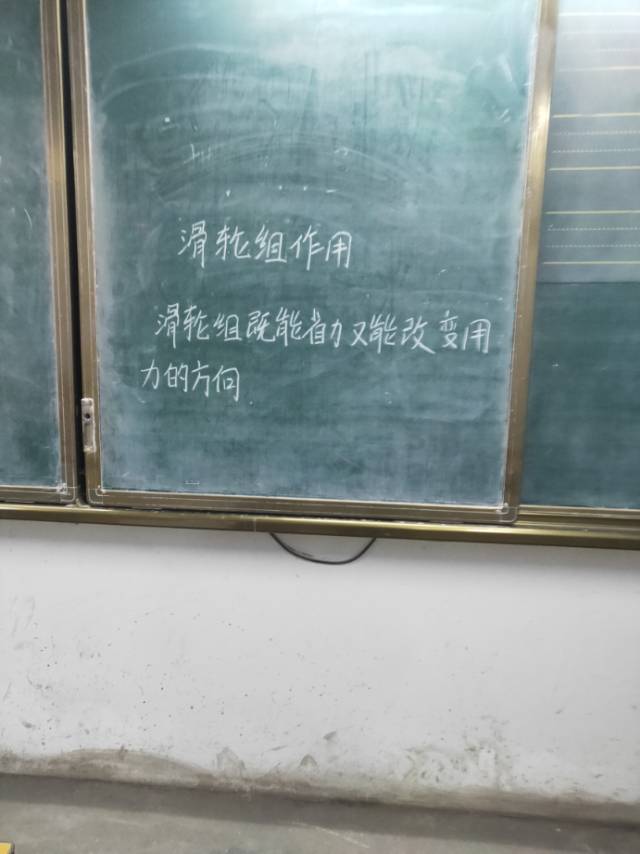 滑轮组作用
滑轮组既能省力又能改变用
力的方向